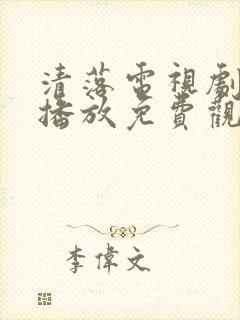 清落電視劇
播放免費觀
李偉文